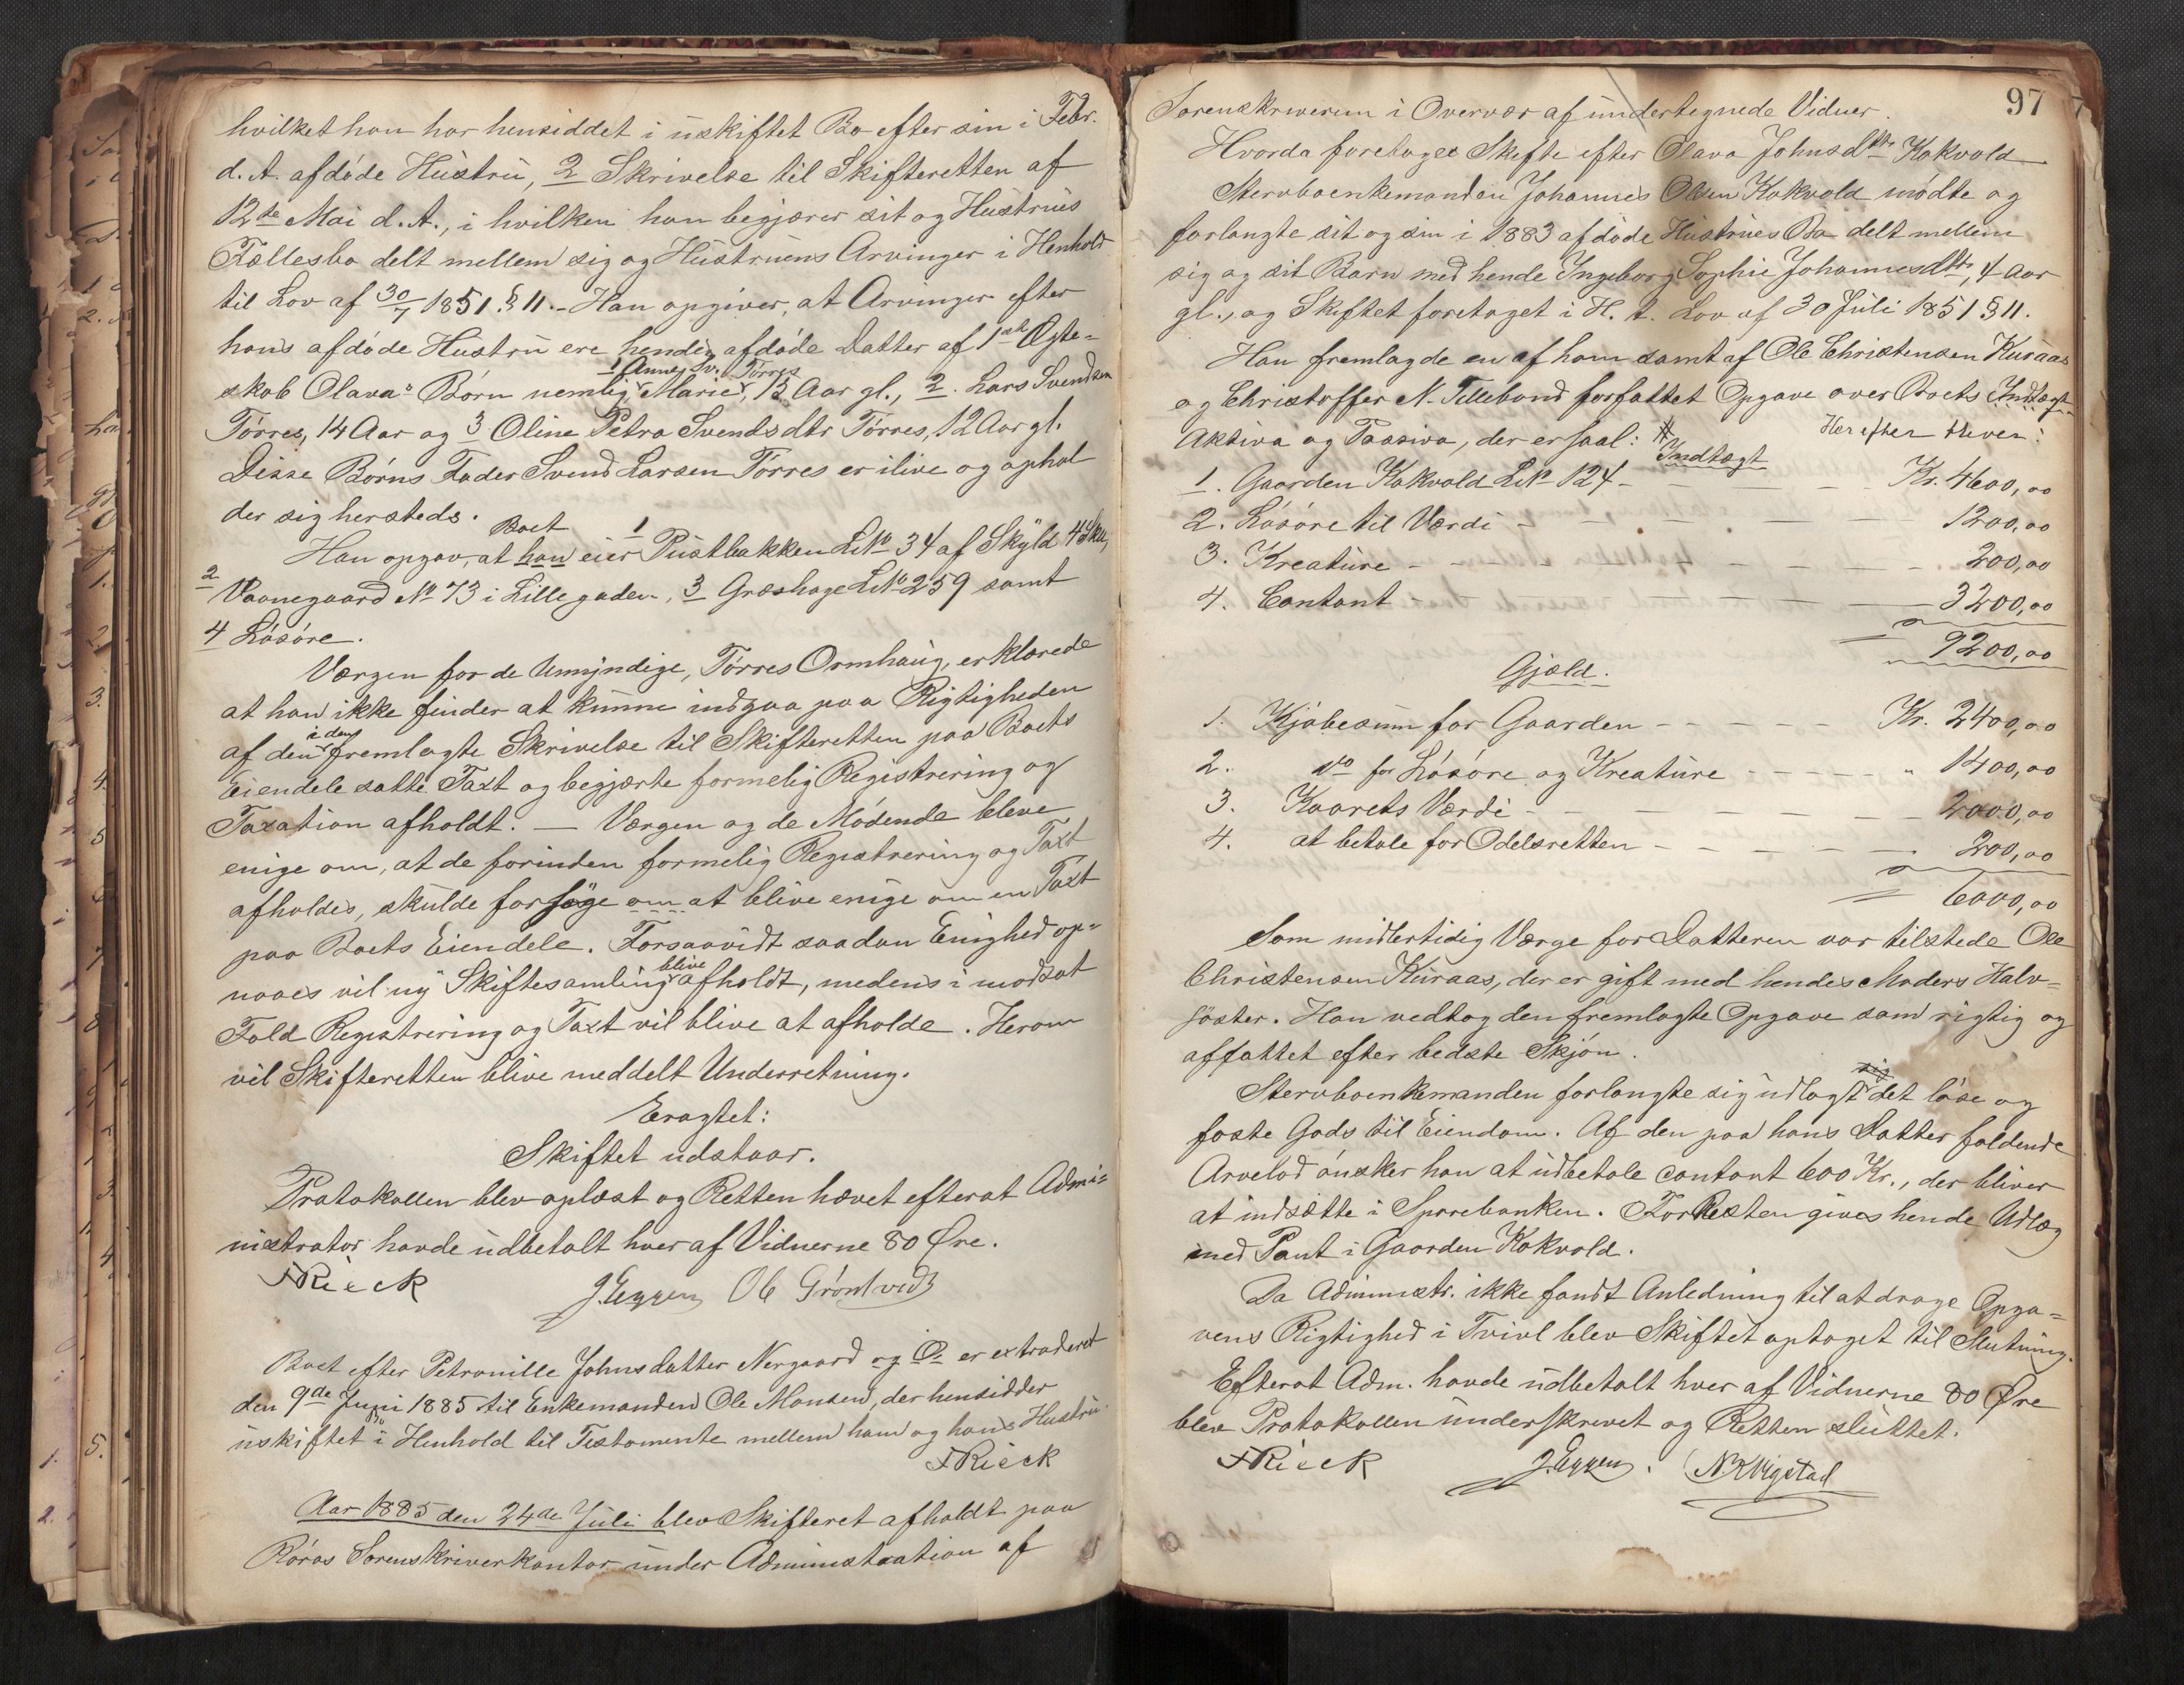 hvilket han har hensiddet i uskiftet Bo efter sin i Febr.
d. A. afdøde Hustru, 2 Skrivelse til Skifteretten af
12te Mai d. A., i hvilken han begjærer sit og Hustrues
Fællesbo delt mellem sig og Hustruens Arvinger i Henhold
til Lov af 30/7 1851 § 11. - Han opgiver, at Arvinger efter
hans afdøde Hustru ere hendes afdøde Datter af 1ste Ægte-
1 Anne Sv. Tørres
skab Olava's Børn nemlig Marie, 15 Aar gl., 2. Lars Svendsen
Tørres, 14 Aar og 3 Oline Petra Svendsdtr Tørres, 12 Aar gl.
Disse Børns Fader Svend Larsen Tørres er ilive og ophol
der sig hersteds.
Boet
Han opgav, at han eier 1 Pustbakken LNo 34 af Skyld 4 Sku,
2 Vaanegaard No 73 i Lillegaden, 3 Græshage LNo 259 samt
4 Løsøre.
Værgen for de Umyndige, Tørres Ormhaug, erklærede
at han ikke finder at kunne indgaa paa Rigtigheden
i den
af den fremlagte Skrivelse til Skifteretten paa Boets
Eiendele satte Taxt og begjærte formelig Registrering og
Taxation afholdt. — Værgen og de Mødende bleve
enige om, at de forinden formelig Registrering og Taxt
afholdes, skulde forsøge om at blive enige om en Taxt
paa Boets Eiendele. Forsaavidt saadan Enighed op-
blive
naaes vil ny Skiftesamling afholdt, medens i modsat
Fald Registrering og Taxt vil blive at afholde. Herom
vil Skifteretten blive meddelt Underretning.
Eragtet:
Skiftet udstaar.
Protokollen blev oplæst og Retten hævet efterat Admi-
nistrator havde udbetalt hver af Vidnerne 80 Øre.
FRieck J. Eggen Ol Grøntvedt
Boet efter Petronille Johnsdatter Nergaard og O: er extraderet
den 9de Juni 1885 til Enkemanden Ole Monsen, der hensidder
uskiftet i Henhold til Testamente mellem ham og hans Hustru.
FRieck
Aar 1885 den 24de Juli blev Skifteret afholdt paa
Røros Sorenskriverkontor under Administration af
97
Sorenskriveren i Overvær af undertegnede Vidner.
Hvorda foretoges Skifte efter Olava Johnsdtr Kokvold
Stervboenkemanden Johannes Olsen Kokvold mødte og
forlangte sit og sin i 1883 afdøde Hustrues Bo delt mellem
sig og sit Barn med hende Ingeborg Sophie Johannesdtr, 4 Aar
gl., og Skiftet foretaget i H. t. Lov af 30 Juli 1851 § 11.
Han fremlagde en af ham samt af Ole Christensen Kuraas
og Christoffer N. Tillebond forfattet Opgave over Boets Indtægt
Aktiva og Passiva, der er saal: Her efter bliver:
Indtægt
1. Gaarden Kokvold LNo 124 - Kr. 4600,00
2. Løsøre til Værdi - 1200,00
3. Kreature - 200,00
4. Contant - 3200,00
9200,00
Gjæld.
1. Kjøbesum for Gaarden - Kr. 2400,00
2. do for Løsøre og Kreature - " 1400,00
3. Kaarets Værdi - 2000,00
4. at betale for Odelsretten - 200,00
6000,00
Som midlertidig Værge for Datteren var tilstede Ole
Christensen Kuraas, der er gift med hendes Moders Halv-
søster. Han vedtog den fremlagte Opgave som rigtig og
affattet efter bedste Skjøn.
sig
Stervboenkemanden forlangte sig udlagt det løse og
faste Gods til Eiendom. Af den paa hans Datter faldende
Arvelod ønsker han at udbetale contant 600 Kr., der bliver
at indsætte i Sparebanken. For Resten gives hende Udlæg
med Pant i Gaarden Kokvold.
Da Administr. ikke fandt Anledning til at drage Opga-
vens Rigtighed i Tvivl blev Skiftet optaget til Slutning.
Efterat Adm. havde udbetalt hver af Vidnerne 80 Øre
blev Protokollen underskrevet og Retten sluttet.
FRieck J. Eggen. N. K. Vigstad